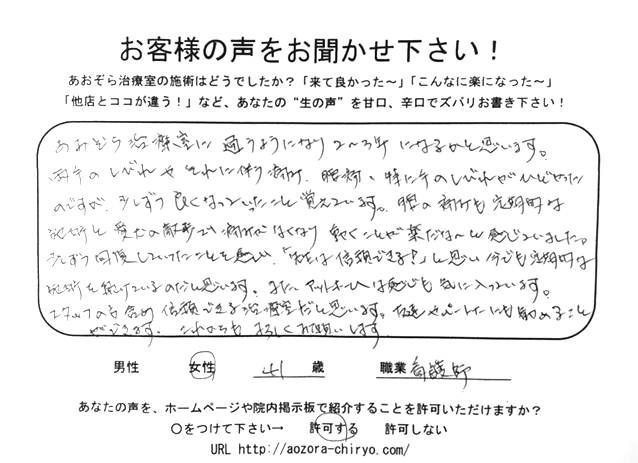 お客様の声をお聞かせ下さい！
あおぞら治療室の施術はどうでしたか？「来て良かった～」「こんなに楽になった～」
「他店とココが違う！」など、あなたの“生の声”を甘口、辛口でズバリお書き下さい！
あおぞら治療室に通うようになり2～3年になるかと思います。
両手のしびれやそれに伴う痛み、腰痛、特に手のしびれがひどかった
のですが、少しずつ良くなっていったこと覚えています。腰の痛みも定期的な
施術と愛犬の散歩で痛みがなくなり動くことが楽だな～と感じていました。
少しずつ回復していったことを思い、「先生は信頼できる！」と思い今でも定期的な
施術を続けているのだと思います。またアットホームな感じも気に入っています。
スタッフの方含め信頼できる治療室だと思います。友達やパートナーにも勧めること
ができます。これからもよろしくお願いします
男性 女性 41 歳 職業 看護師
あなたの声を、ホームページや院内掲示板で紹介することを許可いただけますか？
○をつけて下さい→ 許可する 許可しない
URL http://aozora-chiryo.com/